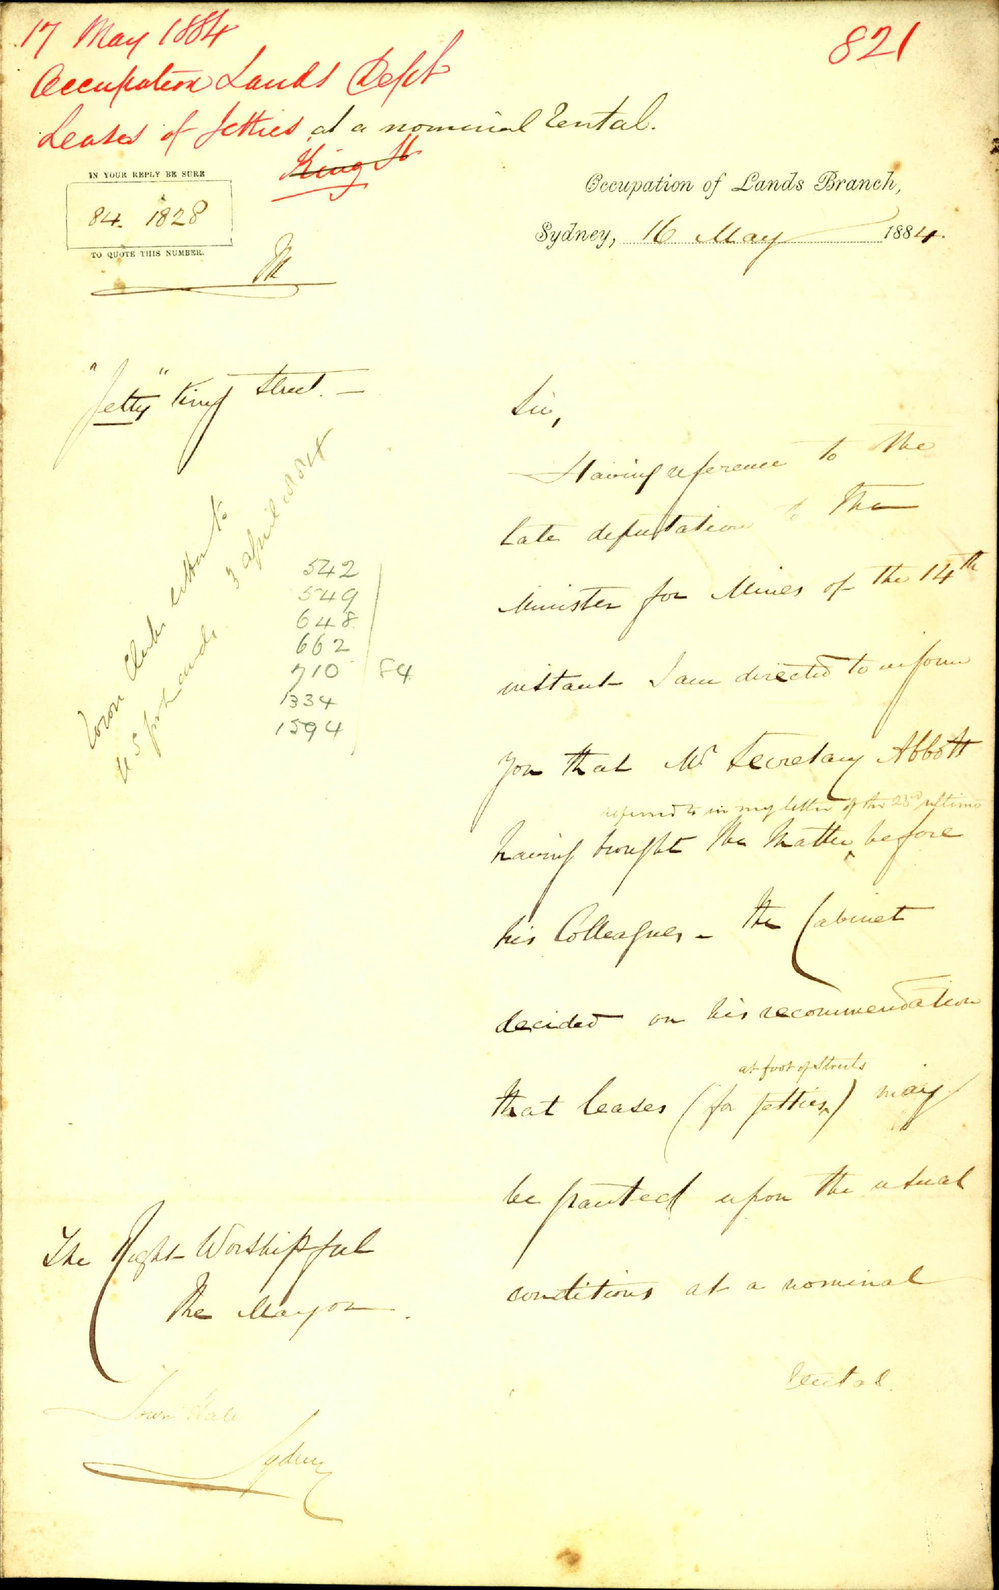 17 May 1884
821
Occupation Lands Dept
Leases of Jetties at a nominal rental.
King St
IN YOUR REPLY BE SURE
84. 1828
TO QUOTE THIS NUMBER.
Occupation of Lands Branch,
Sydney, 16 May 1884.
"Jetty" King Street. —
Town Clerks letter to
U S for Lands 3 April 1884
542
549
648
662
710 84
1334
1594
Sir,
Having reference to the
late deputation to the
Minister for Mines of the 14th
instant I am directed to inform
you that Mr Secretary Abbott
referred to in my letter of the 23rd ultimo
having brought the matter before
his Colleagues – the Cabinet
decided on his recommendation
at foot of Streets
that leases (for Jetties) may
be granted upon the usual
conditions at a nominal
rental.
The Right Worshipful
the Mayor.
Town Hall
Sydney